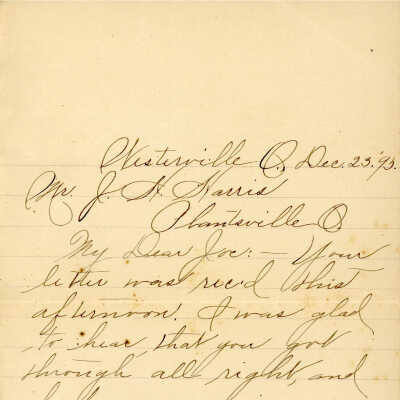 Westerville O. Dec. 23, '93.
Mr. J. H. Harris
Plantsville O
My Dear Joe: — Your
letter was rec'd this
afternoon. I was glad
to hear, that you got
through all right, and